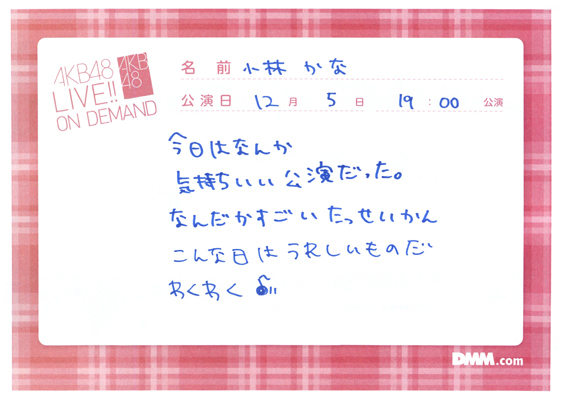 AKB48
LIVE!!
ON DEMAND
AKB
48
名前 小林 かな
公演日 12月 5日 19:00 公演
今日はなんか
気持ちいい公演だった。
なんだかすごいたっせいかん
こんな日はうれしいものだ
わくわく
DMM.com